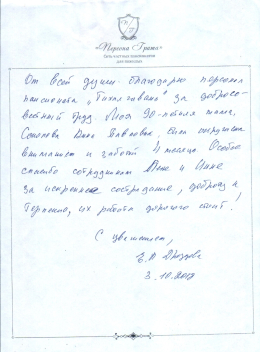 «Персона Грата»
Сеть частных пансионатов
для пожилых
От всей души благодарю персонал
пансионата за добросо-
вестный труд. Моя 90-летняя мама,
была окружена
вниманием и заботой 4 месяца. Особое
спасибо сотрудникам и
за искреннее сострадание, доброту и
терпение, их работа дорогого стоит!
С уважением,
3.10.